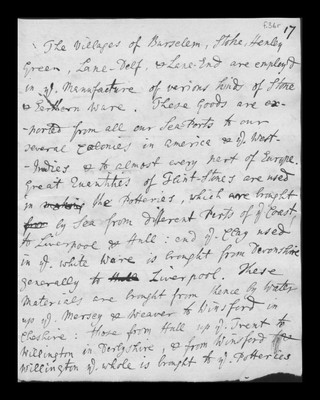 E36r 17
The Villages of Burselem, Stoke, Henley
Green, Lane-Delf, & Lane-End are employ'd
in ye. Manufacture of verious kinds of Stone
& Earthern Ware. These Goods are ex-
-ported from all our Sea Ports to our
several Colonies in america & ye West-
-Indies & to almost every part of Europe.
Great Quantities of Flint-Stones are used
in the Potteries, which are brought
by Sea from different Parts of ye Coast,
to Liverpool & Hull: and ye. Clay used
in ye. white Ware is brought from Devonshire
generally to Liverpool. These
Materials are brought from thence By Water
up ye. Mersey & Weaver to Winsford in
Cheshire: those from Hull up ye. Trent to
Willington in Derbyshire, & from Winsford
Willington ye. whole is brought to ye. Potteries